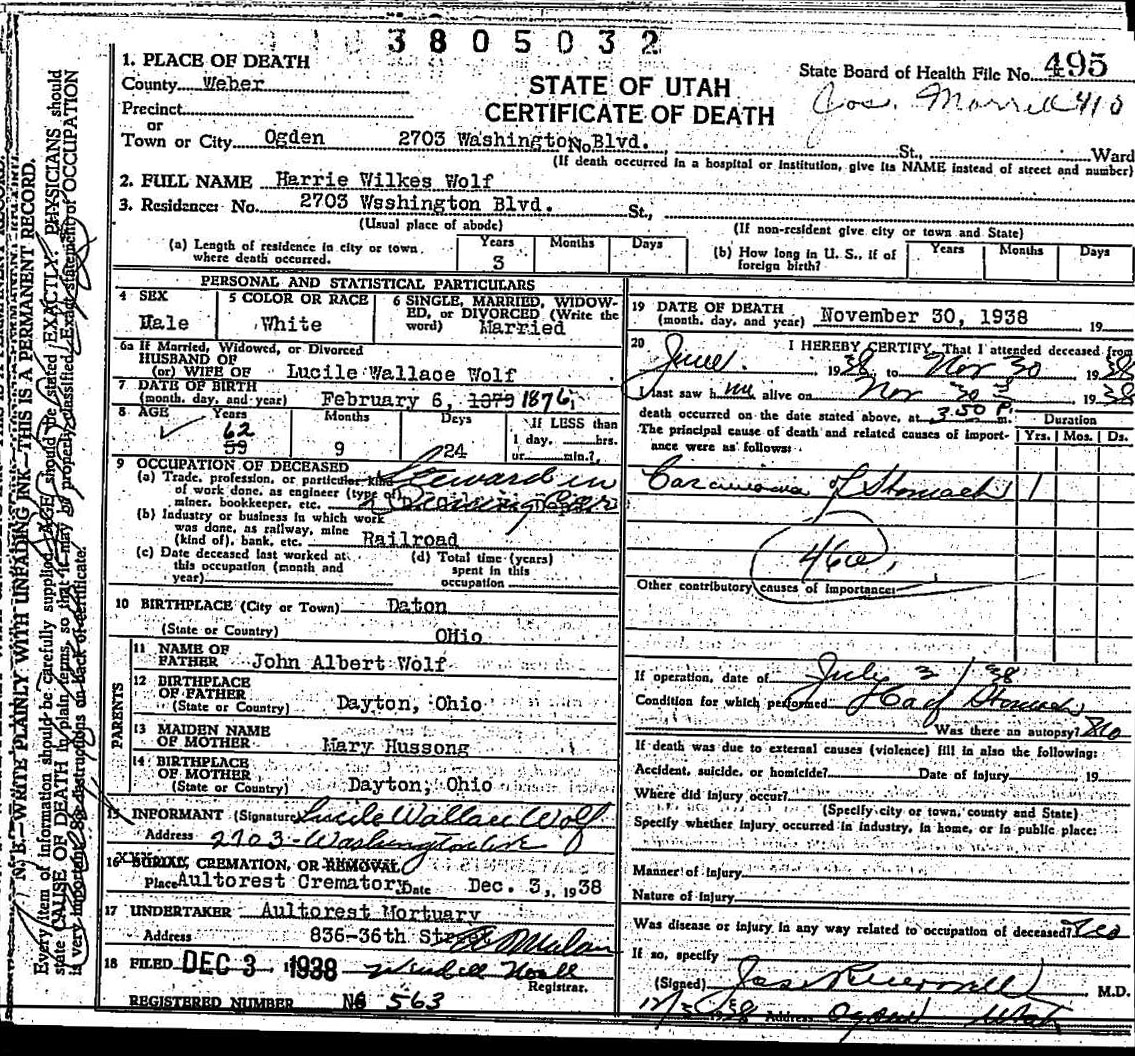 3805032
1. PLACE OF DEATH
County Weber
Precinct
or
Town or City Ogden 2703 Washington No Blvd. St., Ward
STATE OF UTAH
CERTIFICATE OF DEATH
State Board of Health File No. 495
Jos. Morrell 410
(If death occurred in a hospital or institution, give its NAME instead of street and number)
2. FULL NAME Harrie Wilkes Wolf
3. Residence: No. 2703 Wsshington Blvd. St.,
(Usual place of abode)
(If non-resident give city or town and State)
(a) Length of residence in city or town where death occurred. Years 3 Months Days
(b) How long in U. S., if of foreign birth? Years Months Days
PERSONAL AND STATISTICAL PARTICULARS
4 SEX
Male
5 COLOR OR RACE
White
6 SINGLE, MARRIED, WIDOW-
ED, or DIVORCED (Write the
word) Married
6a If Married, Widowed, or Divorced
HUSBAND OF
(or) WIFE OF Lucile Wallace Wolf
7 DATE OF BIRTH
(month, day, and year) February 6, 1879 1876
8 AGE Years Months Days
62
59 9 24
If LESS than
1 day, hrs.
or min.?
9 OCCUPATION OF DECEASED
(a) Trade, profession, or particular kind
of work done, as engineer (type of)
miner, bookkeeper, etc.
Steward in
Car
(b) Industry or business in which work
was done, as railway, mine
(kind of), bank, etc. Railroad
(c) Date deceased last worked at
this occupation (month and
year)
(d) Total time (years)
spent in this
occupation
10 BIRTHPLACE (City or Town) Daton
(State or Country) OHio
PARENTS
11 NAME OF
FATHER John Albert Wolf
12 BIRTHPLACE
OF FATHER
(State or Country) Dayton, Ohio
13 MAIDEN NAME
OF MOTHER Mary Hussong
14 BIRTHPLACE
OF MOTHER
(State or Country) Dayton, Ohio
15 INFORMANT (Signature) Lucile Wallace Wolf
Address 2703 Washington Ave
16 BURIAL, CREMATION, OR REMOVAL
Place Aultorest Crematory Date Dec. 3, 1938
17 UNDERTAKER Aultorest Mortuary
Address 836-36th Street
18 FILED DEC 3 1938 Wendell Noall
Registrar.
REGISTERED NUMBER No 563
19 DATE OF DEATH
(month, day, and year) November 30, 1938 19
20 I HEREBY CERTIFY, That I attended deceased from
June 1938, to Nov 30 1938
I last saw him alive on Nov 30 1938
death occurred on the date stated above, at 3.50 P. m.
The principal cause of death and related causes of import-
ance were as follows:
Duration
Yrs. Mos. Ds.
Carcinoma of Stomach 1
46a
Other contributory causes of importance:
If operation, date of July 2 / 38
Condition for which performed Ca of Stomach
Was there an autopsy? No
If death was due to external causes (violence) fill in also the following:
Accident, suicide, or homicide? Date of injury 19
Where did injury occur?
(Specify city or town, county and State)
Specify whether injury occurred in industry, in home, or in public place:
Manner of injury
Nature of Injury
Was disease or injury in any way related to occupation of deceased?
If so, specify
(Signed) Jos R Morrell M.D.
Address Ogden Utah
N. B.—WRITE PLAINLY WITH UNFADING INK—THIS IS A PERMANENT RECORD.
Every item of information should be carefully supplied. AGE should be stated EXACTLY. PHYSICIANS should
state CAUSE OF DEATH in plain terms, so that it may be properly classified. Exact statement of OCCUPATION
is very important. See instructions on back of certificate.